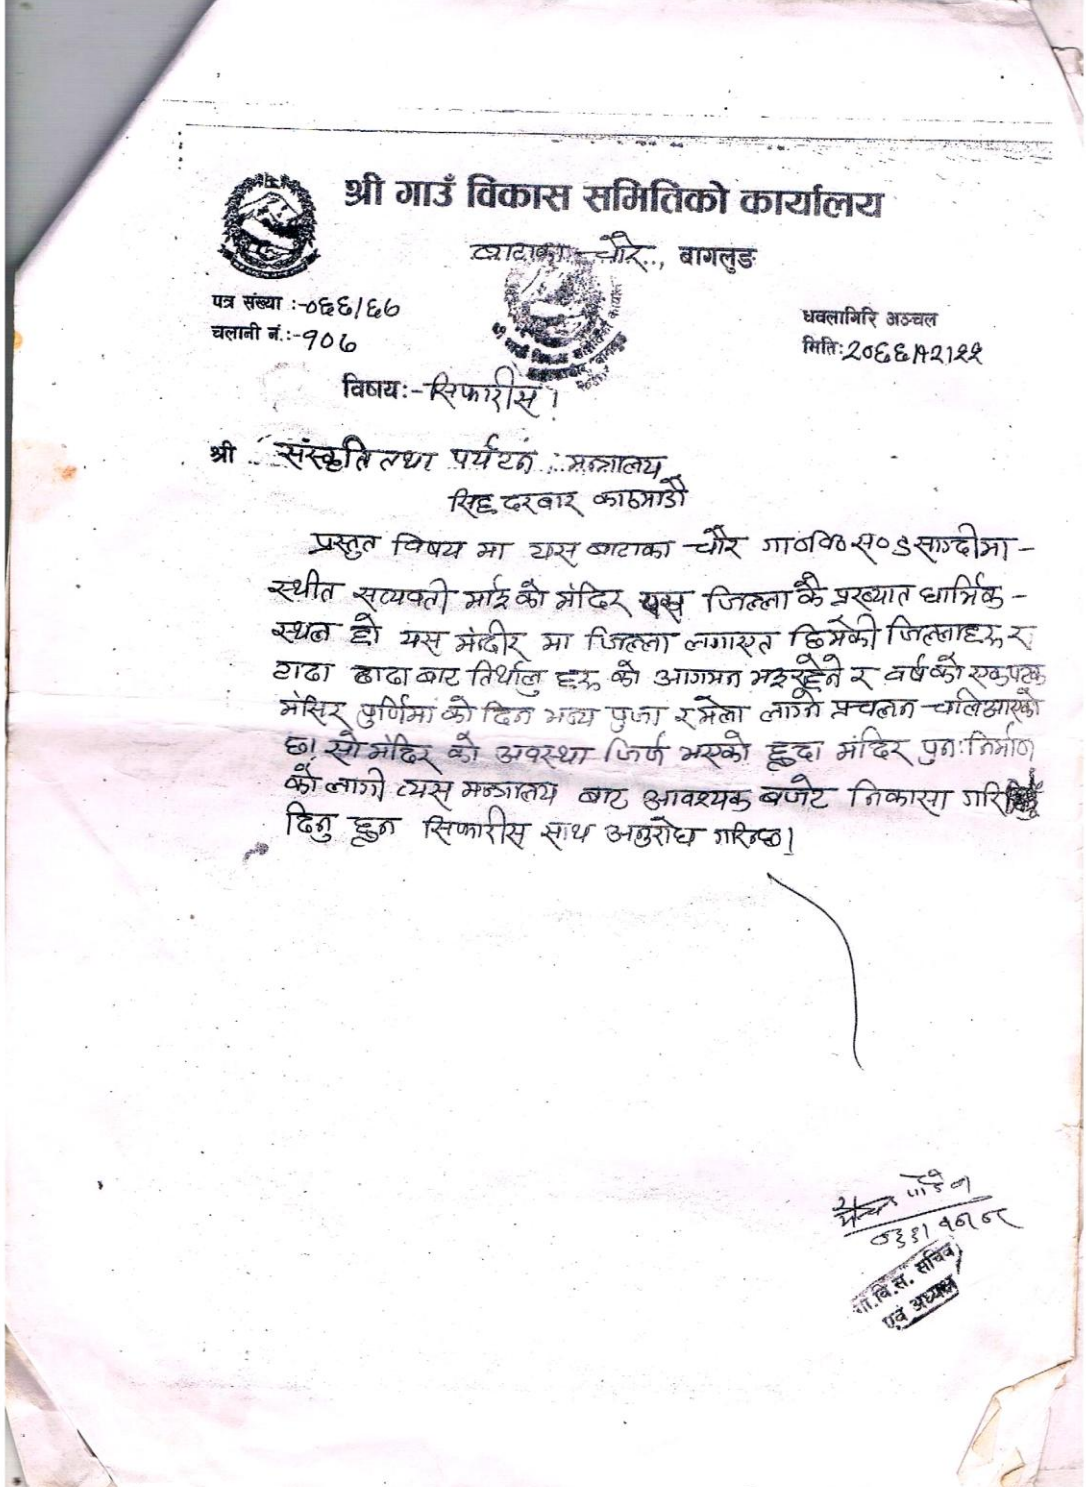 श्री गाउँ विकास समितिको कार्यालय
बाटाका चौर.., बागलुङ
पत्र संख्या :-०६६/६७
चलानी नं.:-१०७
धवलागिरि अञ्चल
मिति:२०६६/१२/२२
विषय:- सिफारीस।
श्री संस्कृति तथा पर्यटन मन्त्रालय
सिंह दरबार काठमाडौ
प्रस्तुत विषय मा यस बाटाका चौर गा०वि०स० ८ साग्दीमा-
स्थीत सत्यवती माई को मंदिर यस जिल्ला कै प्रख्यात धार्मिक-
स्थल हो यस मंदीर मा जिल्ला लगाएत छिमेकी जिल्लाहरू र
टाढा टाढा बाट तिर्थालु हरू को आगमन भइरहेने र वर्ष को एकपटक
मंसिर पुर्णिमा को दिन भव्य पुजा र मेला लाग्ने प्रचलन चलिआएको
छ। सो मंदिर को अवस्था जिर्ण भएको हुदा मंदिर पुनःनिर्माण
को लागी त्यस मन्त्रालय बाट आवश्यक बजेट निकासा गरि
दिनु हुन सिफारीस साथ अनुरोध गरिन्छ।
गा.वि.स. सचिव
एवं अध्यक्ष